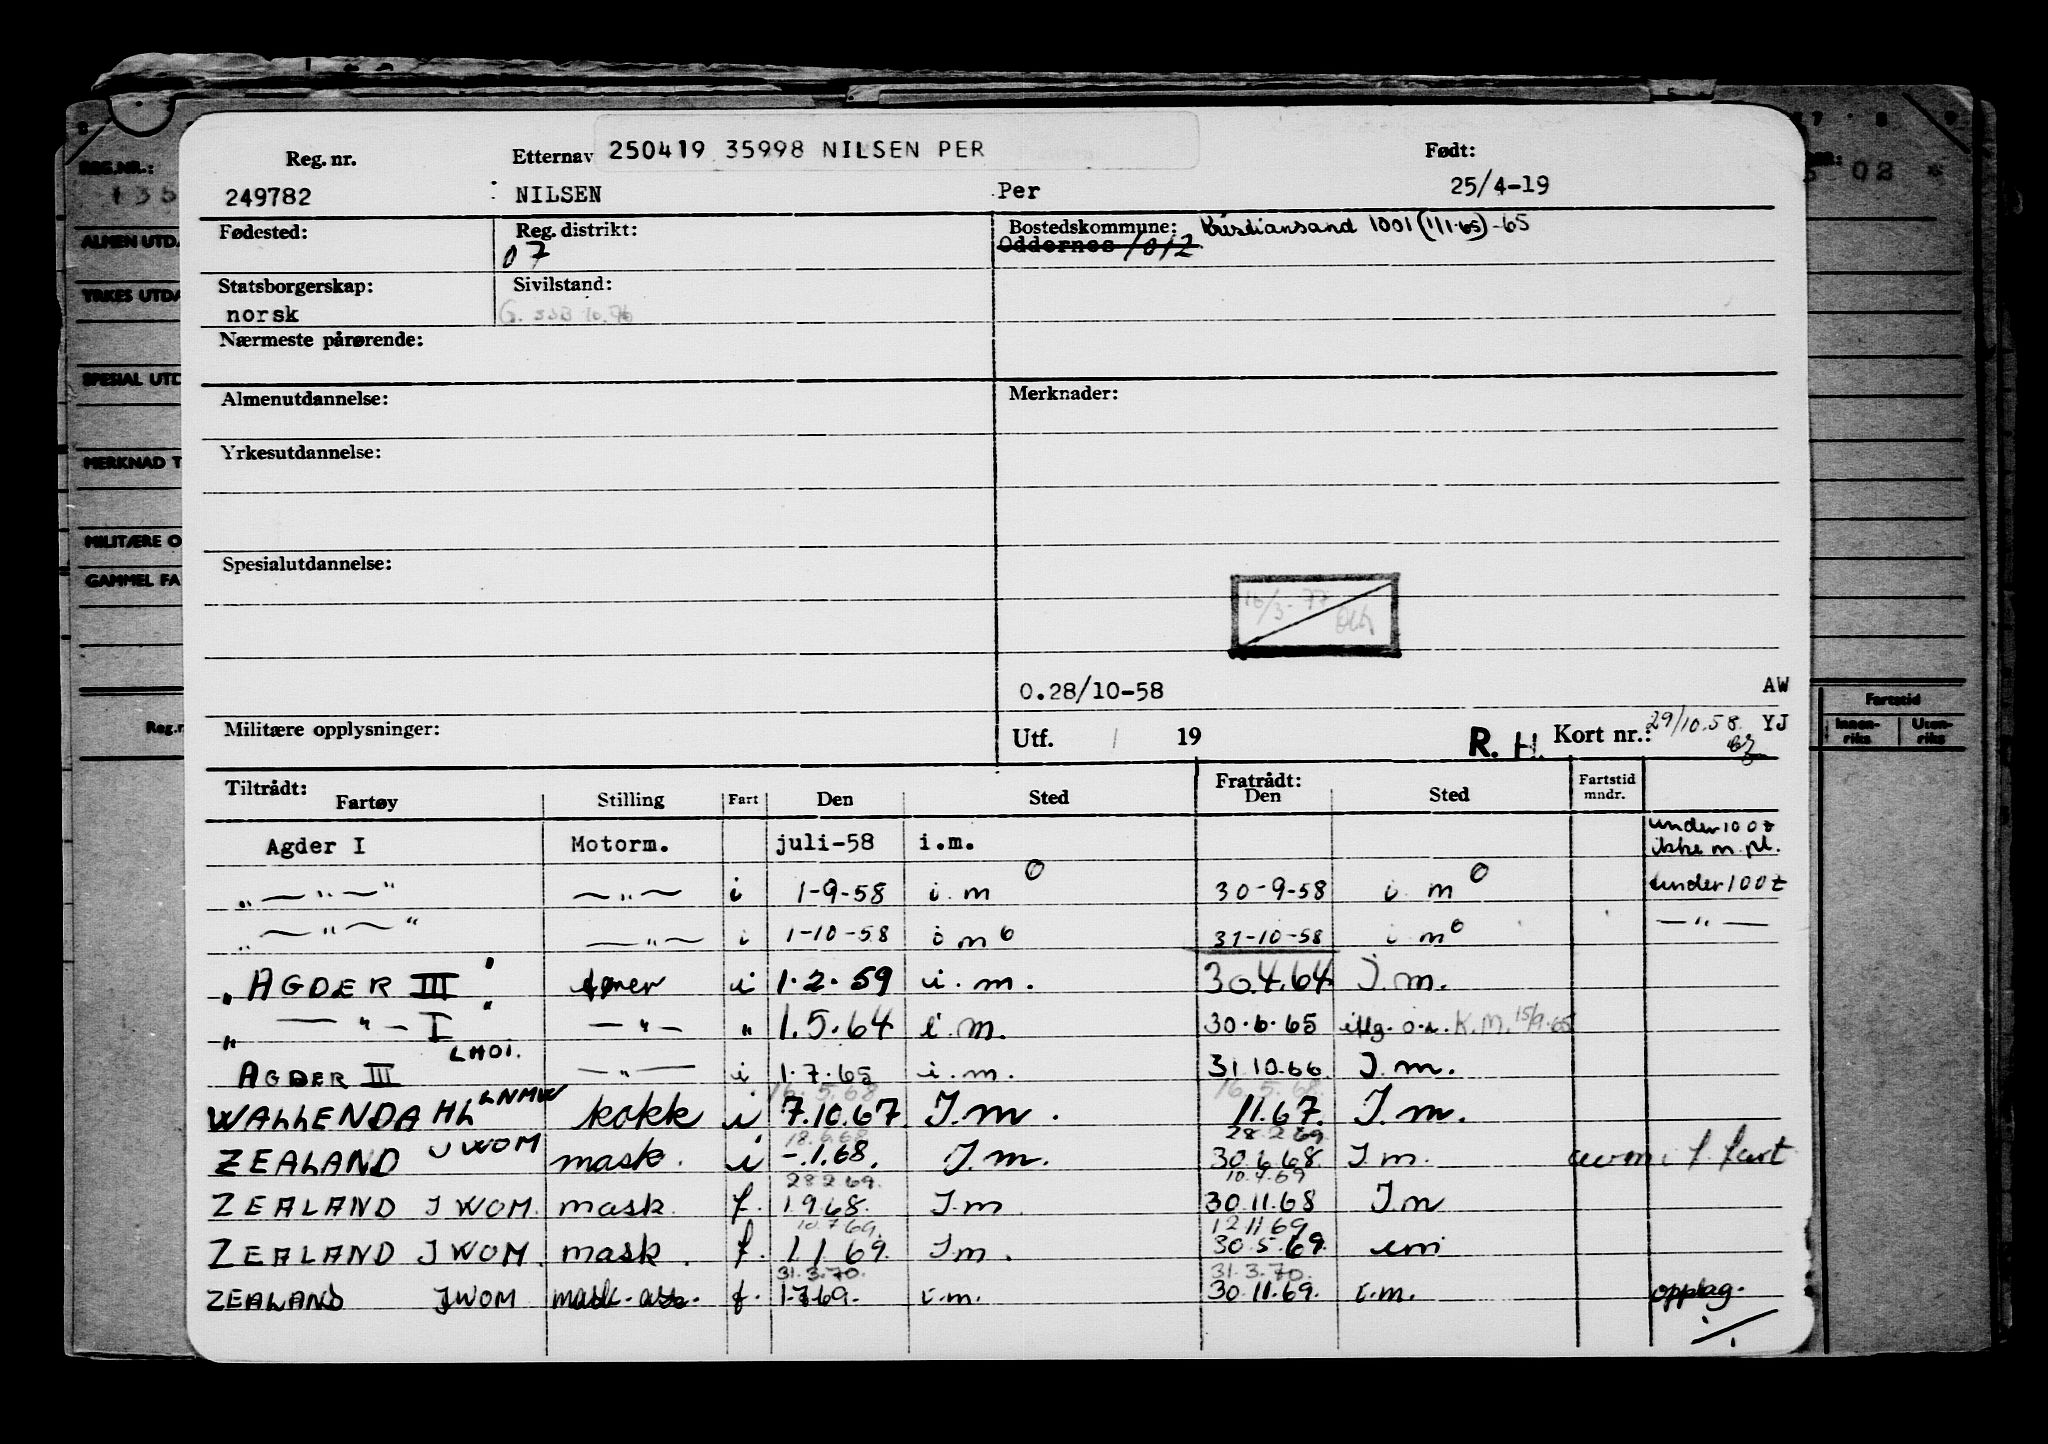 250419 35998 NILSEN PER
Reg. nr. Etternav Født:
249782 NILSEN Per 25/4-19
Fødested: Reg. distrikt: Bostedskommune: Kristiansand 1001 (1/1-65) -65
07 Oddernes 1012
Statsborgerskap: Sivilstand:
norsk G. SSB 10.76
Nærmeste pårørende:
Almenutdannelse: Merknader:
Yrkesutdannelse:
Spesialutdannelse:
16/3-77
0.28/10-58 AW
Militære opplysninger: Utf. 19 R. H. Kort nr.: 29/10.58. YJ
Tiltrådt: Fratrådt: Fartstid
Fartøy Stilling Fart Den Sted Den Sted mndr.
Agder I Motorm. juli-58 i.m. under 100 t ikke m. pl.
„ — " — " — " — i 1-9-58 i.m 0 30-9-58 i.m 0 under 100 t
„ — " — " — " — i 1-10-58 i m 0 31-10-58 i m 0 — " —
„ AGDER III " i 1.2.59 i.m. 30.4.64 I.m.
„ — " — I — " — " 1.5.64 i.m. 30.6.65 K.M. 15/9.65
LHOI.
AGDER III — " — i 1.7.65 i.m. 31.10.66 I.m.
16.5.68 16.5.68
WALLENDAHL LNMW kokk i 7.10.67 I.m. 11.67. I.m.
18.6.68 28.2.69
ZEALAND JWOM mask. i -.1.68. I.m. 30.6.68. I.m. f. fart
28.2.69. 10.7.69
ZEALAND JWOM. mask. f. 1.9.68. I.m 30.11.68 I.m
10.7.69. 12.11.69
ZEALAND JWOM. mask. f. 1.1.69. I.m. 30.5.69.
31.3.70. 31.3.70.
ZEALAND JWOM mask. ass. f. 1.7.69. i.m. 30.11.69. i.m. opplag.
REG.NR.:
135
ALMEN UTD.
YRKES UTDA
SPESIAL UTD
MERKNAD T
MILITÆRE O
GAMMEL FA
Reg.n
02 *
Fartstid
Innen-riks Uten-riks